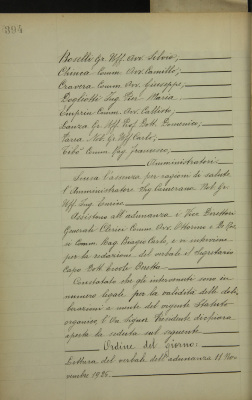 394
Bonetto Gr. Uff. Avv. Silvio;
Chinea Comm. Avv. Camillo;
Cravera Comm. Avv. Giuseppe;
Dogliotti Ing. Pier Maria
Comm. Avv. Callisto;
Lanza Gr. Uff. Prof. Dott. Domenico;
Nob. Gr. Uff. Carlo;
Comm. Rag. Francesco;
Amministratori.
Scusa l'assenza per ragioni di salute
l'Amministratore Sig. Camerana Nob. Gr.
Uff. Ing.
Assistono all'adunanza i Vice Direttori
Generali Clerici Comm. Avv. Ettorino e
Comm. Rag. Carlo, e vi interviene
per la redazione del verbale il Segretario
Capo Dott. Oreste.
Constatato che gli intervenuti sono in
numero legale per la validità delle deli-
berazioni a mente del vigente Statuto
organico, l'On. Signor Presidente dichiara
aperta la seduta sul seguente
Ordine del Giorno:
Lettura del verbale dell'adunanza 11 No-
vembre 1925.